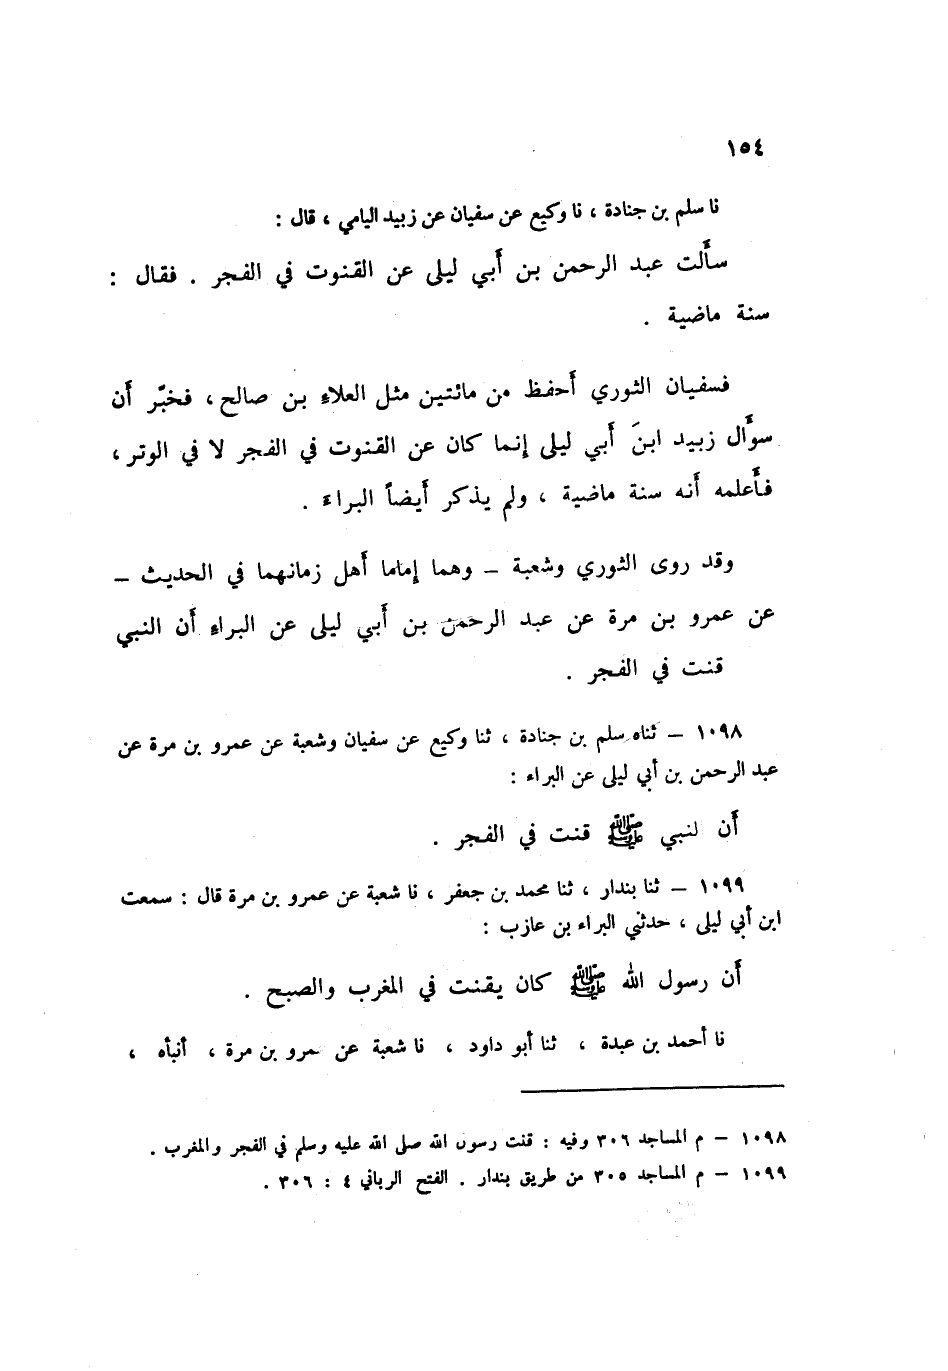 ١٥٤
نا سلم بن جنادة ، نا وكيع عن سفيان عن زبيد اليامي ، قال :
سأَلت عبد الرحمن بن أَبي ليلى عن القنوت في الفجر . فقال :
سنة ماضية .
فسفيان الثوري أَحفظ من مائتين مثل العلاءِ بن صالح ، فخبّر أَن
سؤَال زبيد ابنَ أَبي ليلى إنما كان عن القنوت في الفجر لا في الوتر ،
فأَعلمه أَنه سنة ماضية ، ولم يذكر أَيضاً البراءَ .
وقد روى الثوري وشعبة – وهما إماما أَهل زمانهما في الحديث –
عن عمرو بن مرة عن عبد الرحمن بن أَبي ليلى عن البراءِ أَن النبي
قنت في الفجر .
١٠٩٨ – ثناه سلم بن جنادة ، ثنا وكيع عن سفيان وشعبة عن عمرو بن مرة عن
عبد الرحمن بن أبي ليلى عن البراء :
أَن لنبي ﷺ قنت في الفجر .
١٠٩٩ – ثنا بندار ، ثنا محمد بن جعفر ، نا شعبة عن عمرو بن مرة قال : سمعت
ابن أبي ليلى ، حدثني البراء بن عازب :
أَن رسول الله ﷺ كان يقنت في المغرب والصبح .
نا أحمد بن عبدة ، ثنا أبو داود ، نا شعبة عن عمرو بن مرة ، أنبأه ،
١٠٩٨ – م المساجد ٣٠٦ وفيه : قنت رسول الله صلى الله عليه وسلم في الفجر والمغرب .
١٠٩٩ – م المساجد ٣٠٥ من طريق بندار . الفتح الرباني ٤ : ٣٠٦ .